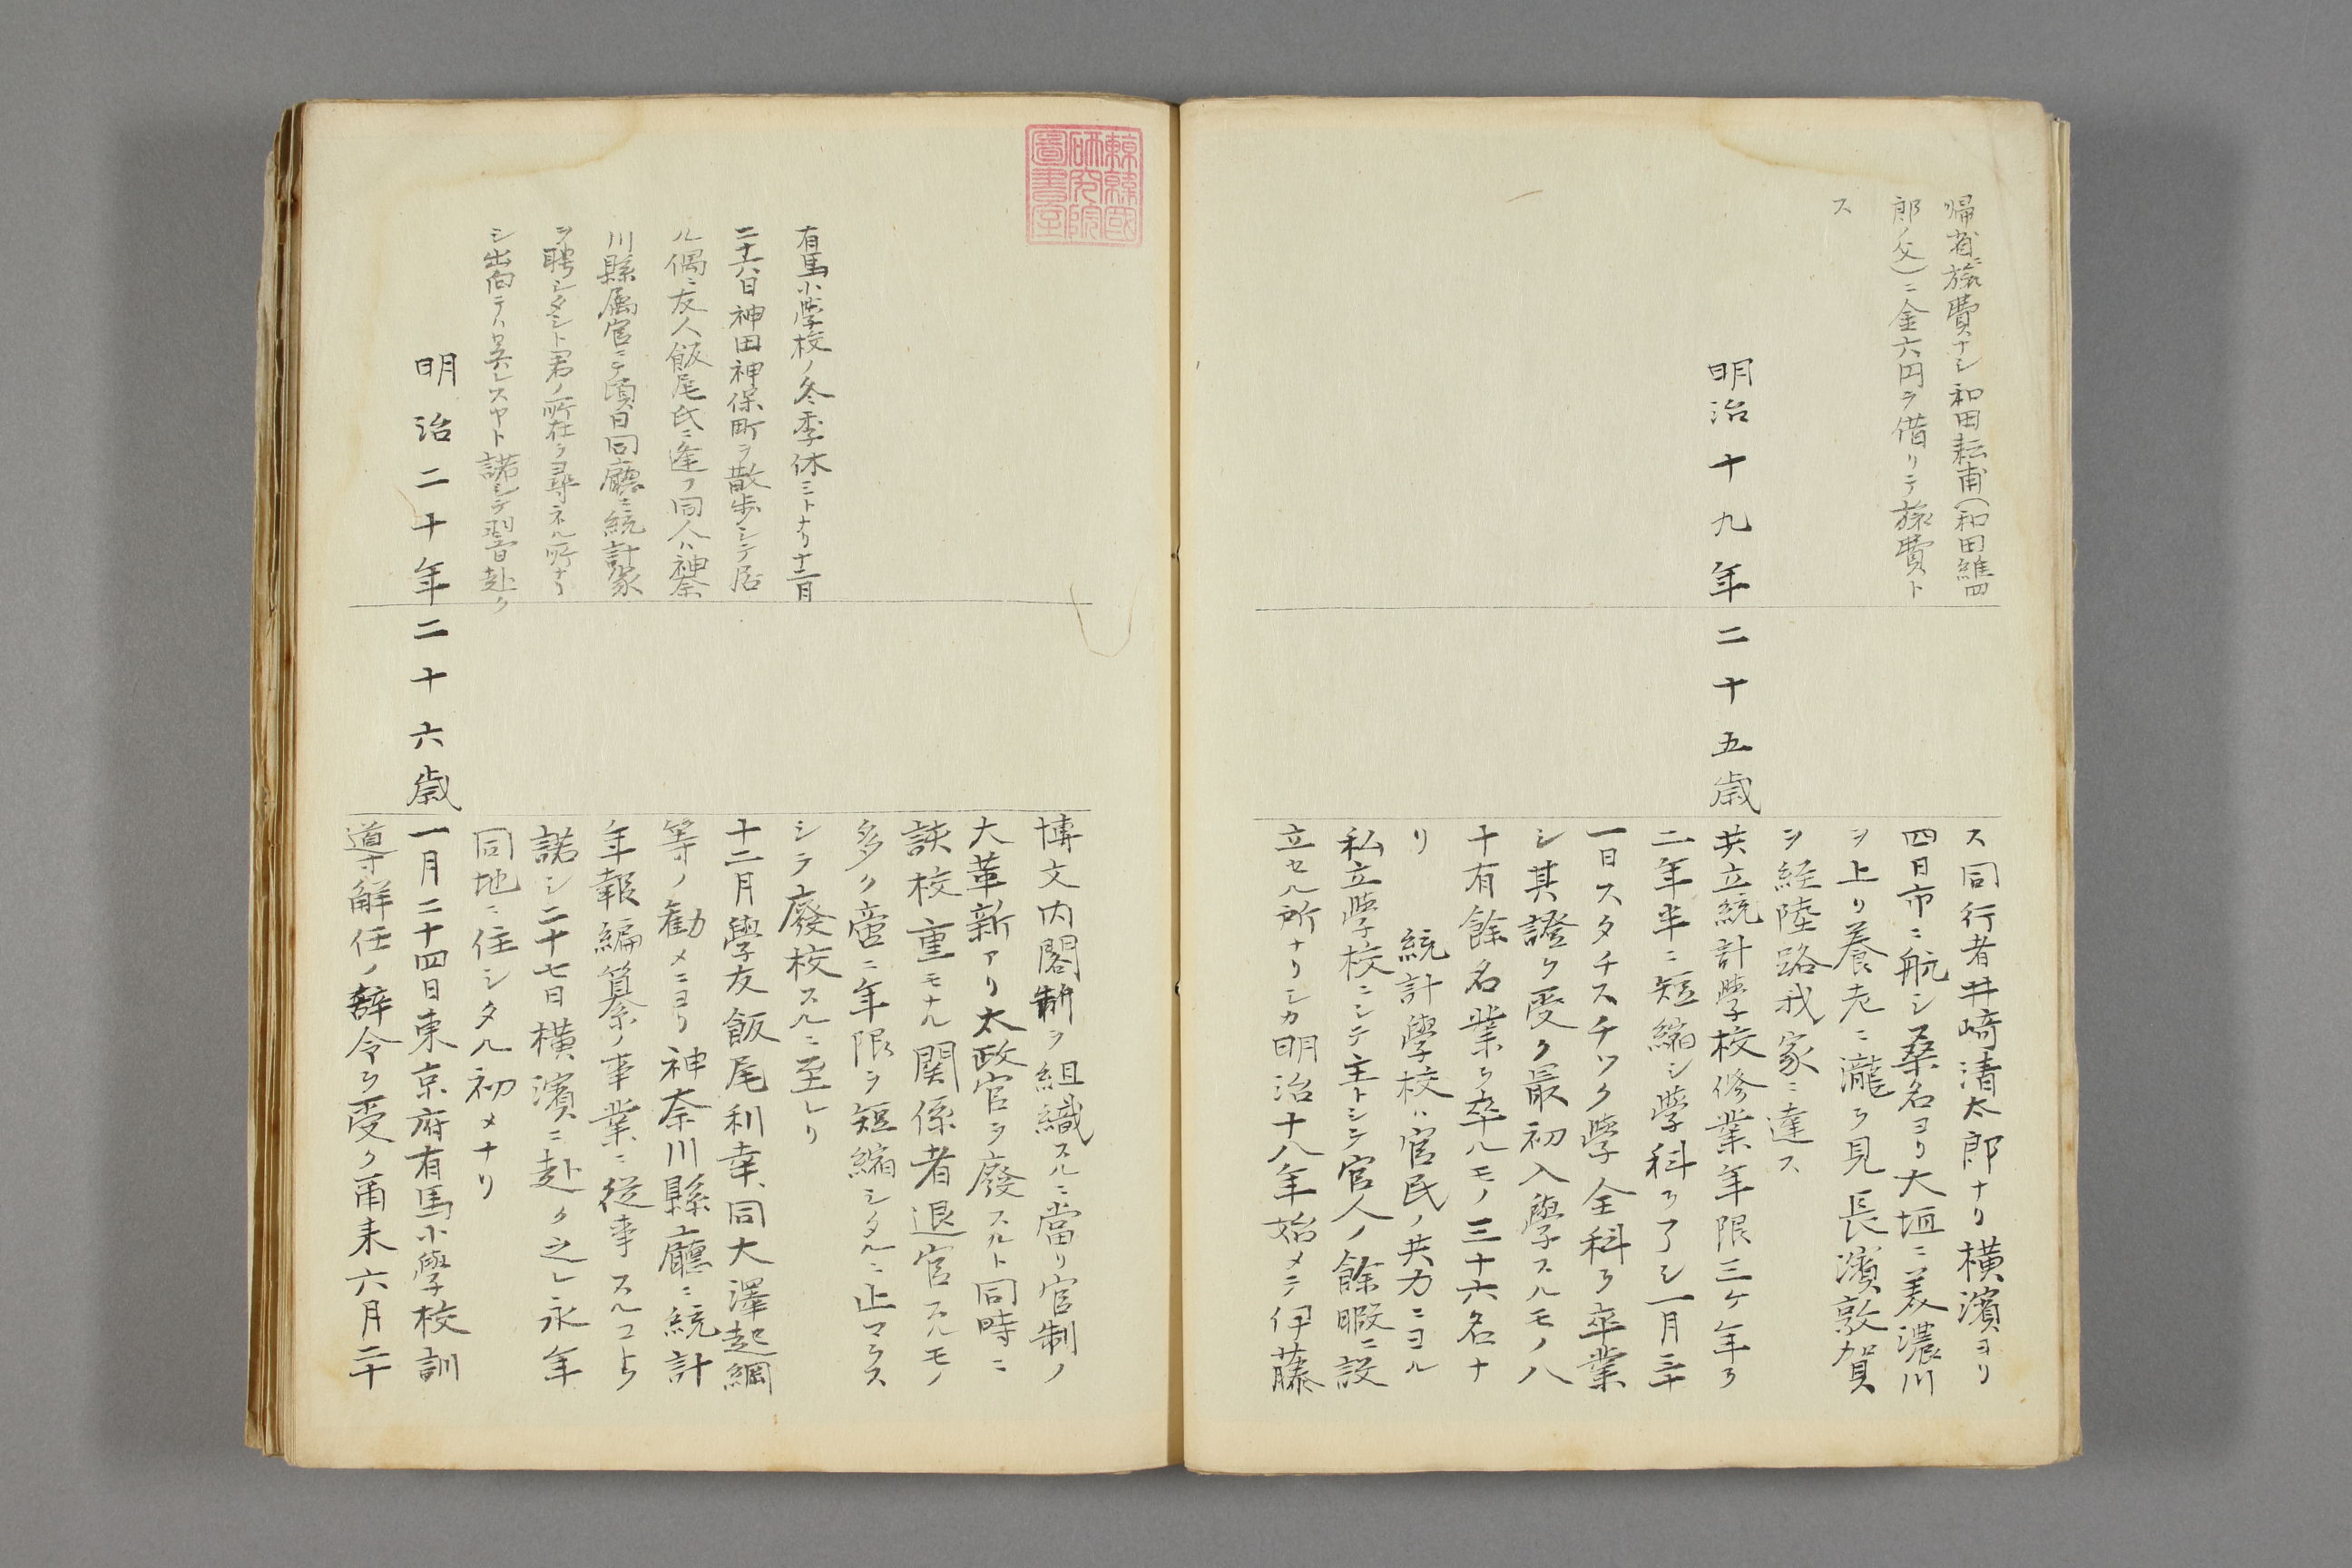 帰省旅費ナシ和田耘甫(和田維四
郎ノ父)ニ金六円ヲ借リテ旅費ト
ス
明治十九年二十五歳
ス同行者井﨑清太郎ナリ横濱ヨリ
四日市ニ航シ桑名ヨリ大垣ニ美濃川
ヲ上リ養老ニ瀧ヲ見長濱敦賀
ヲ経陸路我家ニ達ス
共立統計學校修業年限三ケ年ヲ
二年半ニ短縮シ學科ヲ了シ一月三十
一日スタチスチツク學全科ヲ卒業
シ其證ヲ受ク最初入學スルモノ八
十有餘名業ヲ卒ルモノ三十六名ナ
リ 統計學校ハ官民ノ共力ニヨル
私立學校ニシテ主トシテ官人ノ餘暇ニ設
立セル所ナリシカ明治十八年始メテ伊藤
有馬小學校ノ冬季休ミトナリ十二月
二十六日神田神保町ヲ散歩シテ居
ル偶ニ友人飯尾氏ニ逢フ同人ハ神奈
川縣属官ニテ頃日同廳ニ統計家
ヲ聘シタシト君ノ所在ヲ尋ネル所ナリ
シ出向テハ呉レスヤト諾シテ翌日赴ク
明治二十年二十六歳
博文内閣制ヲ組織スルニ當リ官制ノ
大革新アリ太政官ヲ廢スルト同時ニ
該校重モナル関係者退官スルモノ
多ク啻ニ年限ヲ短縮シタルニ止マラス
シテ廢校スルニ至レリ
十二月學友飯尾利幸、同大澤起綱
等ノ勧メニヨリ神奈川縣廳ニ統計
年報編纂ノ事業ニ從事スルコトヲ
諾シ二十七日横濱ニ赴ク之レ永年
同地ニ住シタル初メナリ
一月二十四日東京府有馬小學校訓
導解任ノ辞令ヲ受ク甭来六月二十
圖書室
研究院